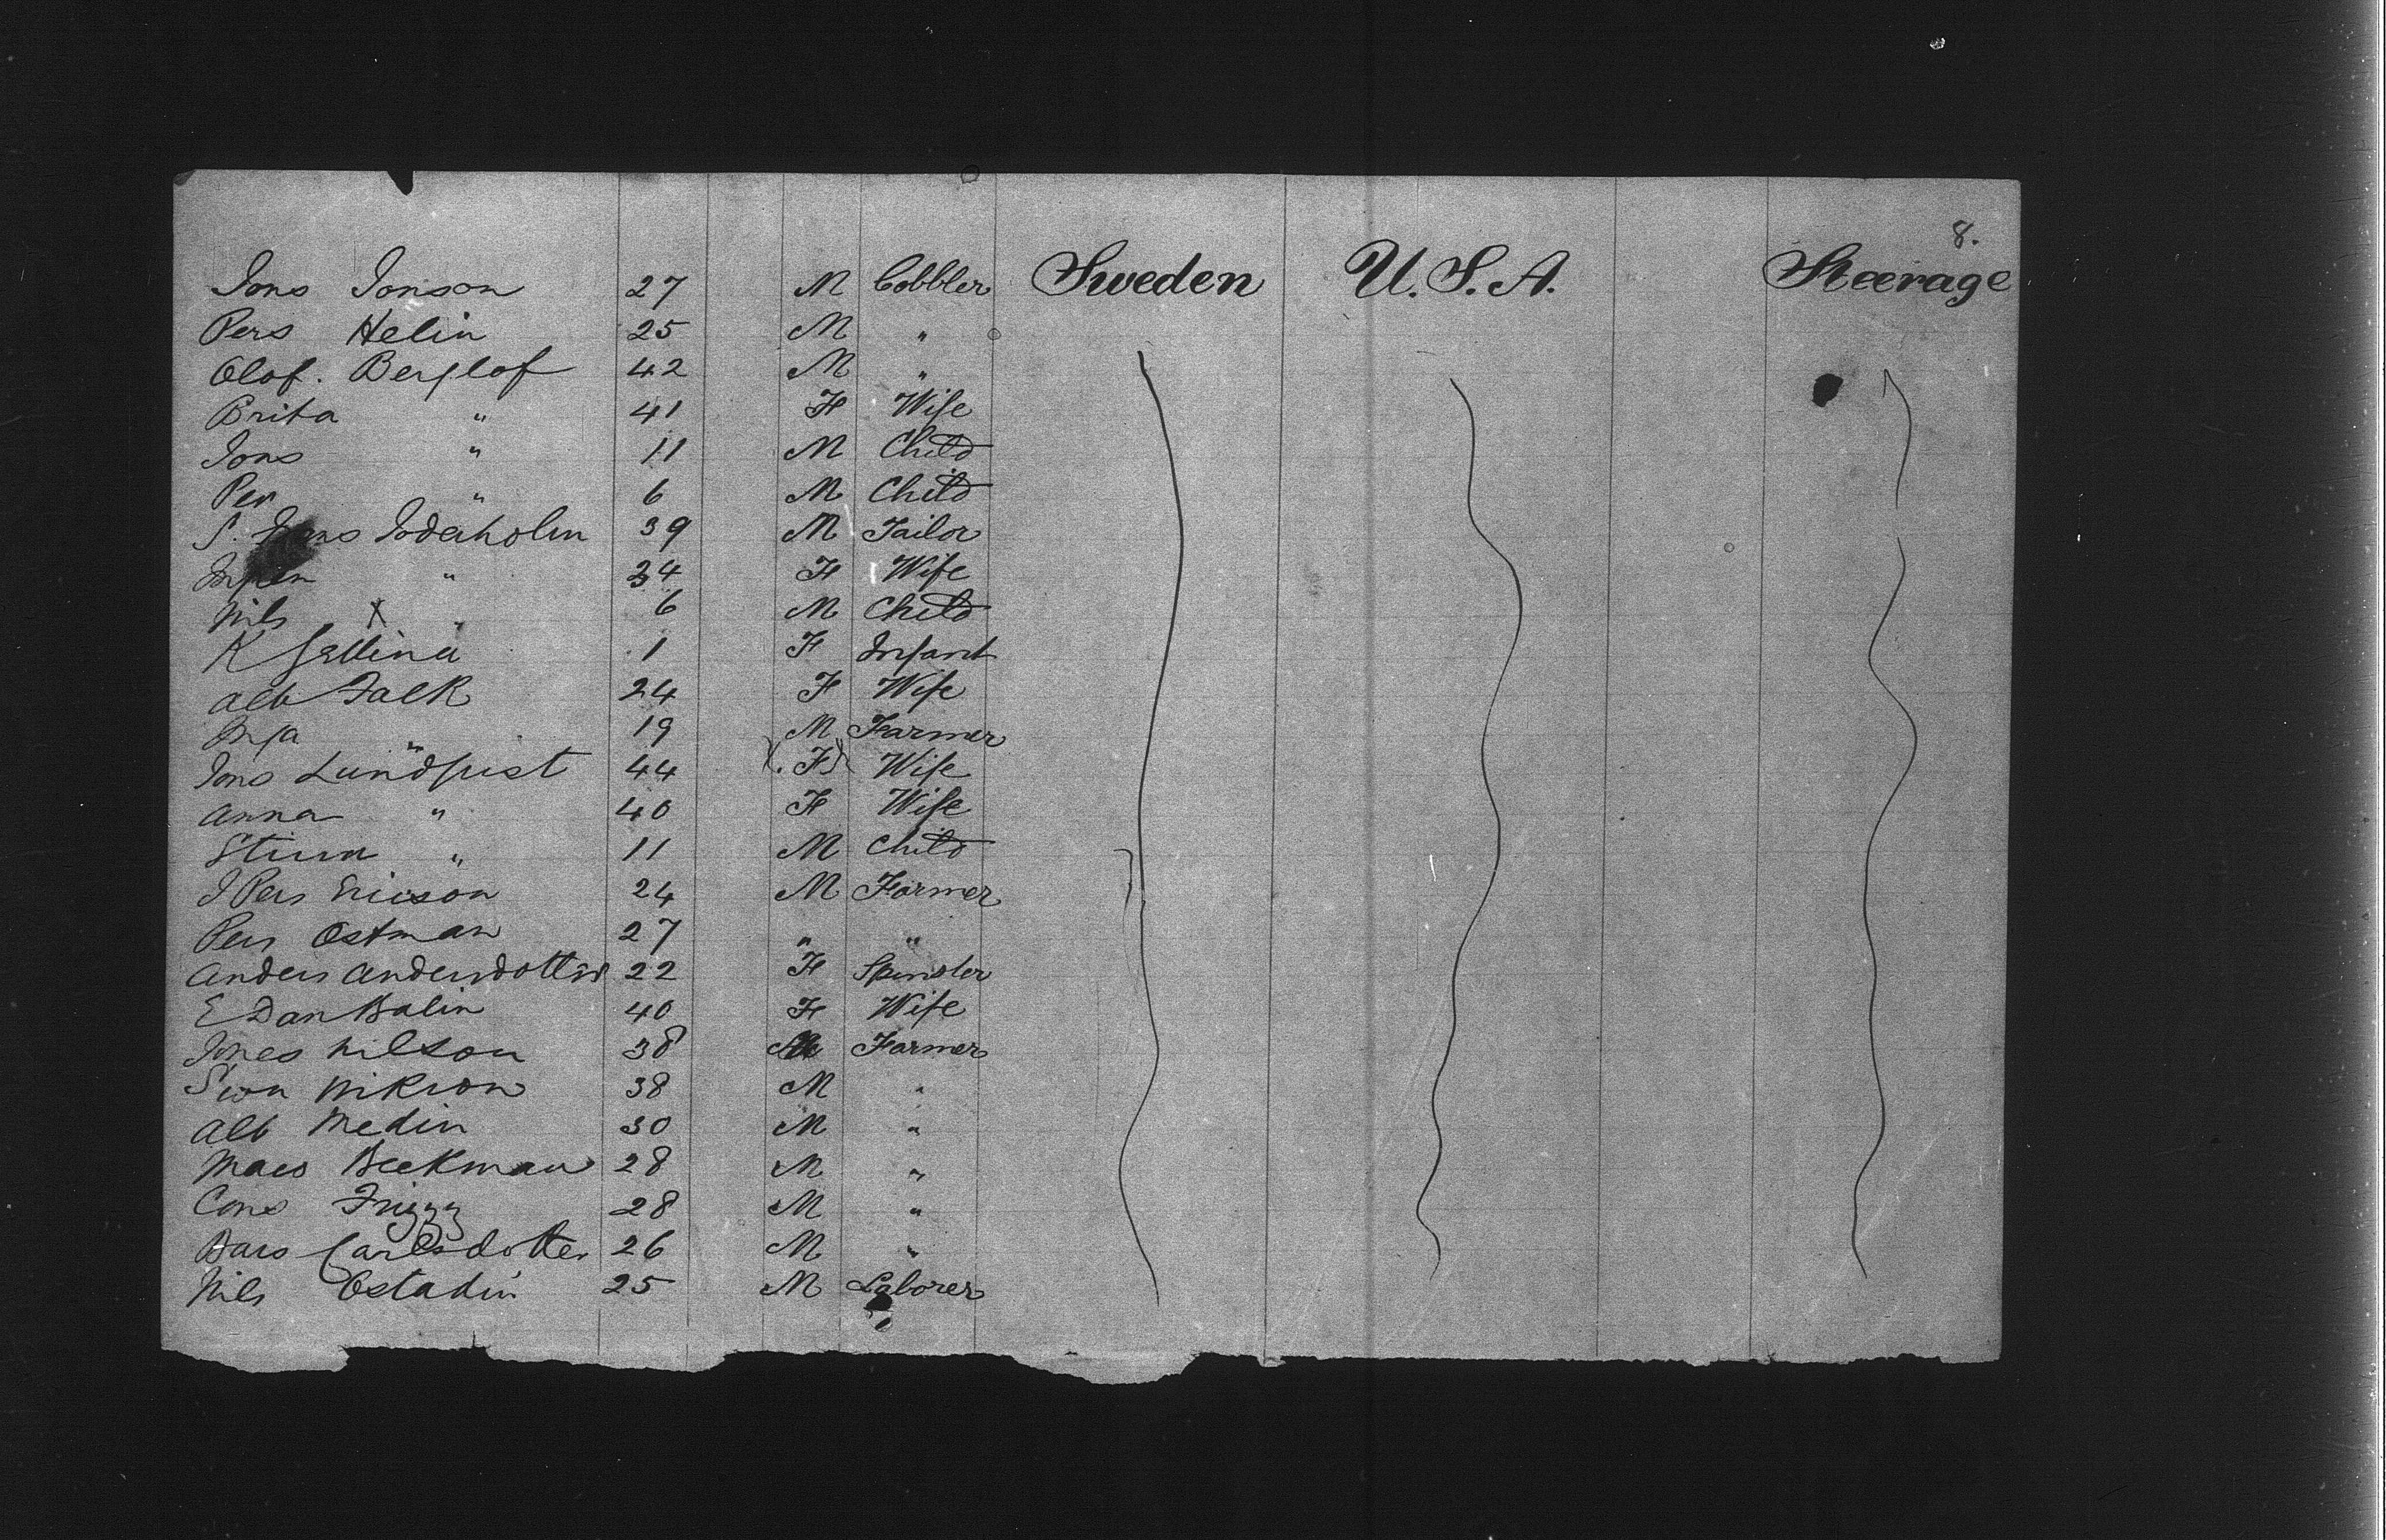 8.
Jons Jonson 27 M Cobbler Sweden U.S.A. Steerage
Pers Helin 25 M "
Olof. Berglof 42 M "
Brita " 41 F Wife
Jons " 11 M Child
Per " 6 M Child
S. Jons Soderholm 39 M Tailor
" 34 F Wife
Nils X " 6 M Child
K 1 F Infant
Alb Falk 24 F Wife
Inga " 19 M Farmer
Jons Lundquist 44 (F) Wife
Anna " 40 F Wife
" 11 M Child
J Pers Ericson 24 M Farmer
Pers Ostman 27 " "
Anders Andersdotter 22 F Spinster
E Dan Balin 40 F Wife
Jones Nilson 38 M Farmer
38 M "
Alb Medin 30 M "
Maes Beekman 28 M "
Cons Frizzz 28 M "
Bars Carlsdotter 26 M "
Nils Ostadin 25 M Laborer